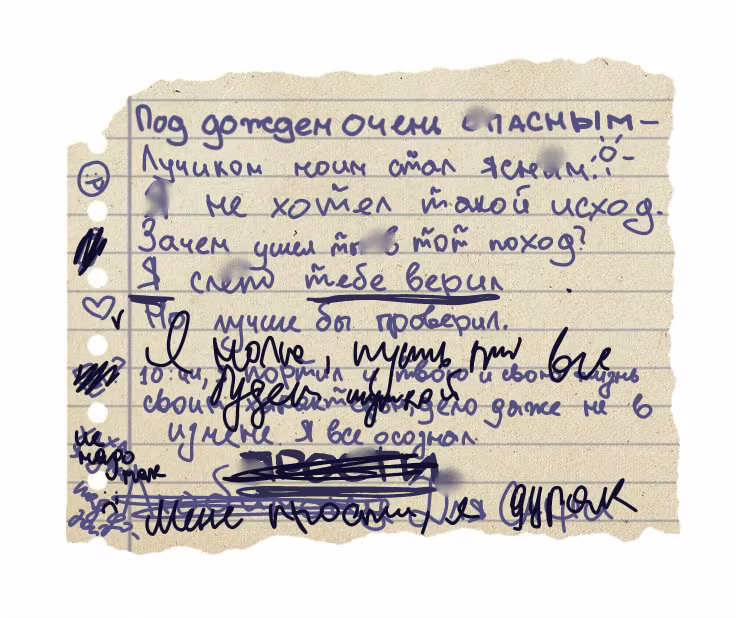 Под дождем очень опасным –
Лучиком моим стал ясным.
Я не хотел такой исход.
Зачем ушел ты в тот поход?
Я слепо тебе верил
Но лучше бы проверил.
Я молю, пусть это все
будет шуткой
портил и твою и свою жизнь
своим характером дело даже не в
измене. Я все осознал
ПРОСТИ
Мене прости, я дурак
не
надо
так